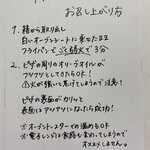 お召し上がり方
1. 箱から取り出し
白いオーブンシートに乗せたまま
フライパンで ごく弱火で3分
2. ピザの周りのオリーブオイルが
フツフツとしてきたらOK!
火が強いと焦げてしまうので注意!
ピザの表面がカリッと
裏面はアツアツになったら完成!
※オーブントースターでの温めもOK
※電子レンジは食感も変わってしまうので
オススメしません。